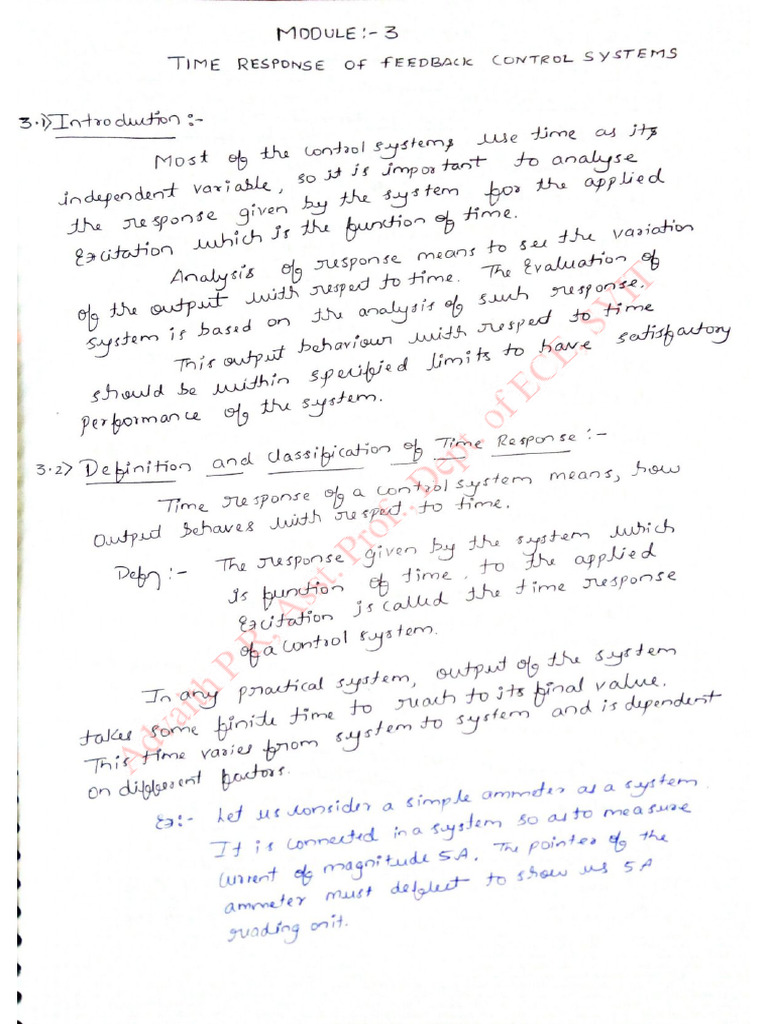 MODULE:- 3
TIME RESPONSE OF FEEDBACK CONTROL SYSTEMS
3.1) Introduction:-
Most of the control systems use time as its
independent variable, so it is important to analyse
the response given by the system for the applied
Excitation which is the function of time.
Analysis of response means to see the variation
of the output with respect to time. The Evaluation of
system is based on the analysis of such response.
This output behaviour with respect to time
should be within specified limits to have satisfactory
performance of the system.
3.2) Definition and classification of Time Response:-
Time response of a control system means, how
output behaves with respect to time.
Defn:- The response given by the system which
is function of time, to the applied
Excitation is called the time response
of a control system.
In any practical system, output of the system
takes some finite time to reach to its final value.
This time varies from system to system and is dependent
on different factors.
Ex:- Let us consider a simple ammeter as a system.
It is connected in a system so as to measure
current of magnitude 5A. The pointer of the
ammeter must deflect to show us 5A
reading on it.
Advaith P R, Asst. Prof., Dept. of ECE, SVIT